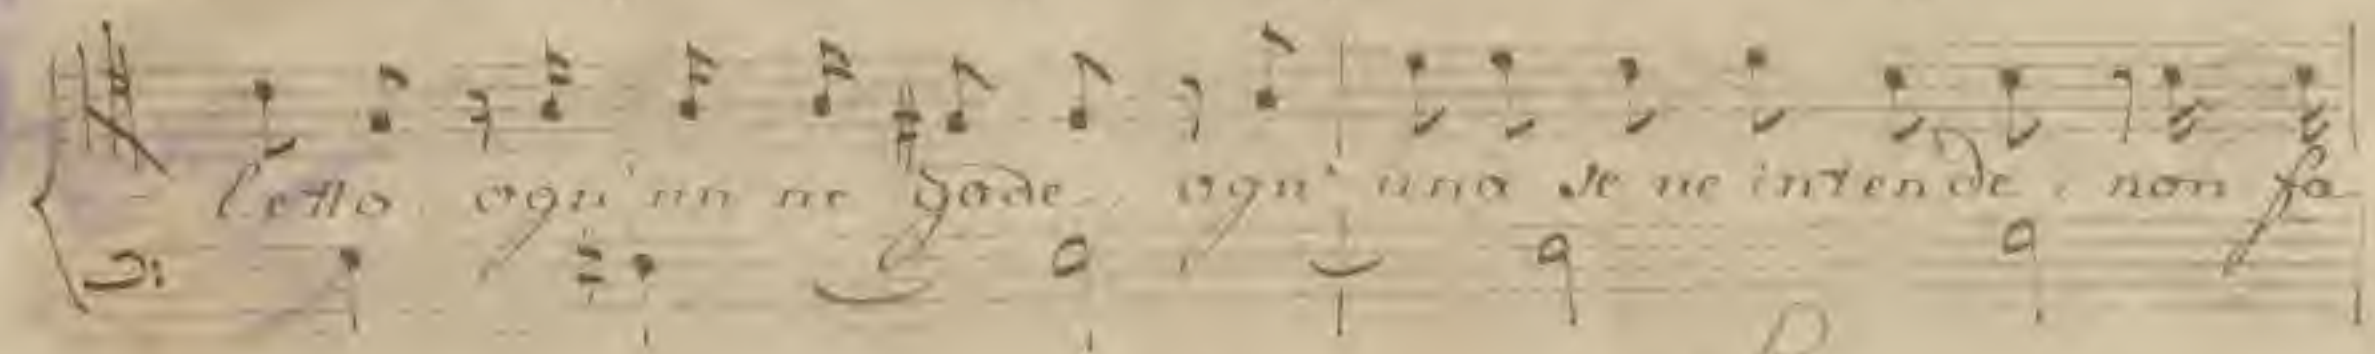 letto. ogn'un ne gode, ogn'una se ne intende. non fa